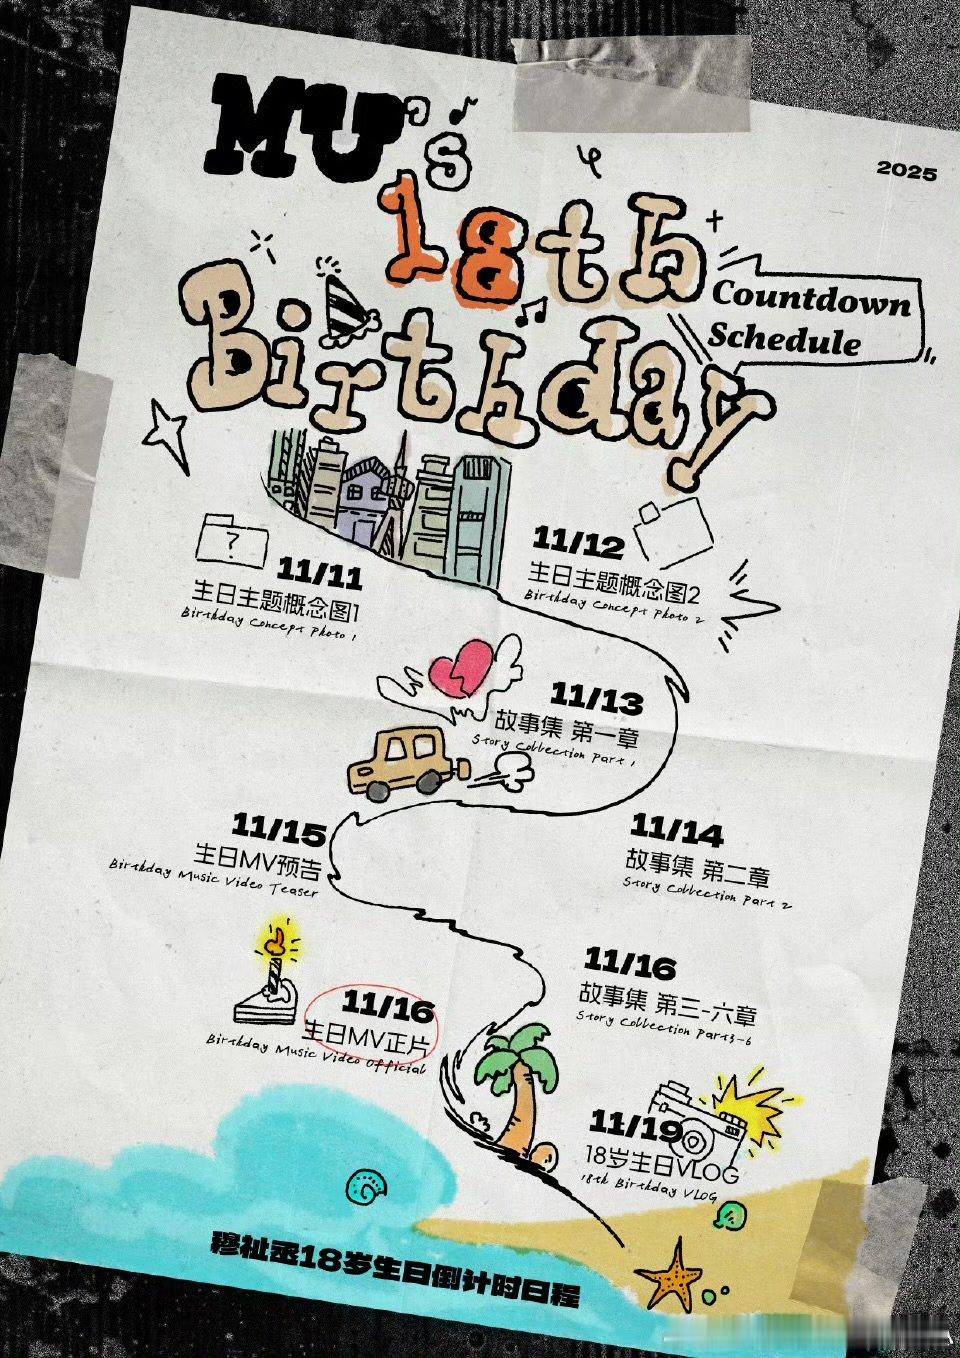 MU's
2025
18th
Birthday
Countdown
Schedule
?
11/11
生日主题概念图1
Birthday Concept Photo 1
11/12
生日主题概念图2
Birthday Concept Photo 2
11/13
故事集 第一章
Story Collection Part 1
11/14
故事集 第二章
Story Collection Part 2
11/15
生日MV预告
Birthday Music Video Teaser
11/16
故事集 第三-六章
Story Collection Part3-6
11/16
生日MV正片
Birthday Music Video Official
11/19
18岁生日VLOG
18th Birthday VLOG
穆祉丞18岁生日倒计时日程